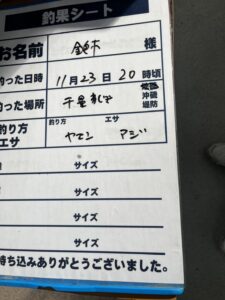 釣果シート
お名前 鈴木 様
釣った日時 11月23日 20時頃
釣った場所 沖磯 堤防
釣り方 エサ 釣り方 ヤエン エサ アジ
サイズ
サイズ
サイズ
サイズ
持ち込みありがとうございました。